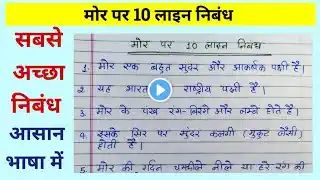 मोर पर 10 लाइन निबंध
सबसे
अच्छा
निबंध
आसान
भाषा में
मोर पर 10 लाइन निबंध
1. मोर एक बहुत सुन्दर और आकर्षक पक्षी है।
2. यह भारत का राष्ट्रीय पक्षी है।
3. मोर के पंख रंग-बिरंगे और लम्बे होते है।
4. इसके सिर पर सुंदर कलगी (मुकुट जैसी)
होती है।
5. मोर की गर्दन चमकीले नीले या हरे रंग की